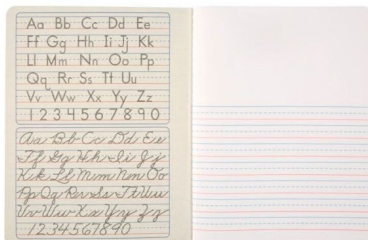 Aa Bb Cc Dd Ee
Ff Gg Hh Ii Jj Kk
Ll Mm Nn Oo Pp
Qq Rr Ss Tt Uu
Vv Ww Xx Yy Zz
1 2 3 4 5 6 7 8 9 0
Aa Bb Cc Dd Ee
Ff Gg Hh Ii Jj
Kk Ll Mm Nn Oo
Pp Qq Rr Ss Tt Uu
Vv Ww Xx Yy Zz
1234567890